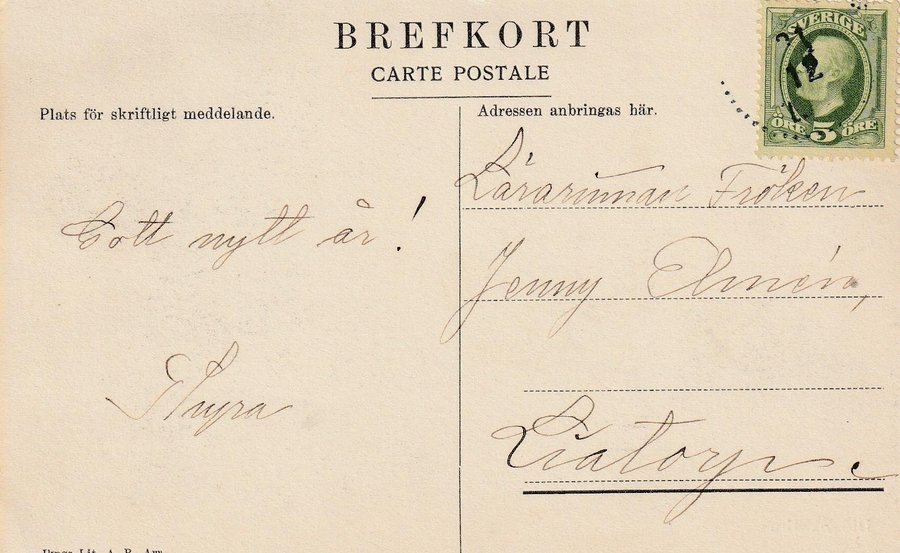 BREFKORT
CARTE POSTALE
Plats för skriftligt meddelande.
Adressen anbringas här.
SVERIGE
21
12
ÖRE 5 ÖRE
Gott nytt år!
Thyra
Lärarinnan Fröken
Jenny Elmén,
Liatorp.
Lit. A. B.